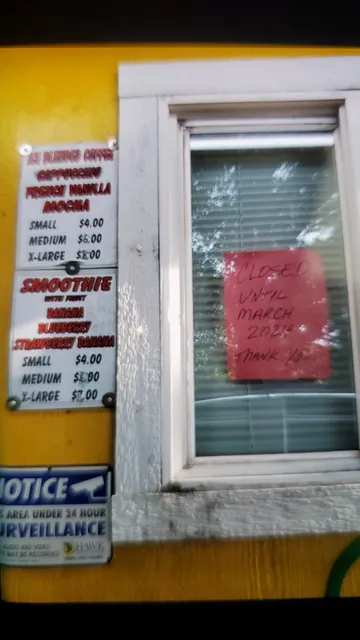 ICE BLENDED COFFEE
CAPPUCCINO
FRENCH VANILLA
MOCHA
SMALL $4.00
MEDIUM
X-LARGE
SMOOTHIE
WITH FRUIT
BANANA
BLUEBERRY
STRAWBERRY BANANA
SMALL $4.00
MEDIUM
X-LARGE $7.00
NOTICE
AREA UNDER 24 HOUR
SURVEILLANCE
AUDIO AND VIDEO
MAY BE RECORDED
HAWK
CLOSED
UNTIL
MARCH
THANK YOU